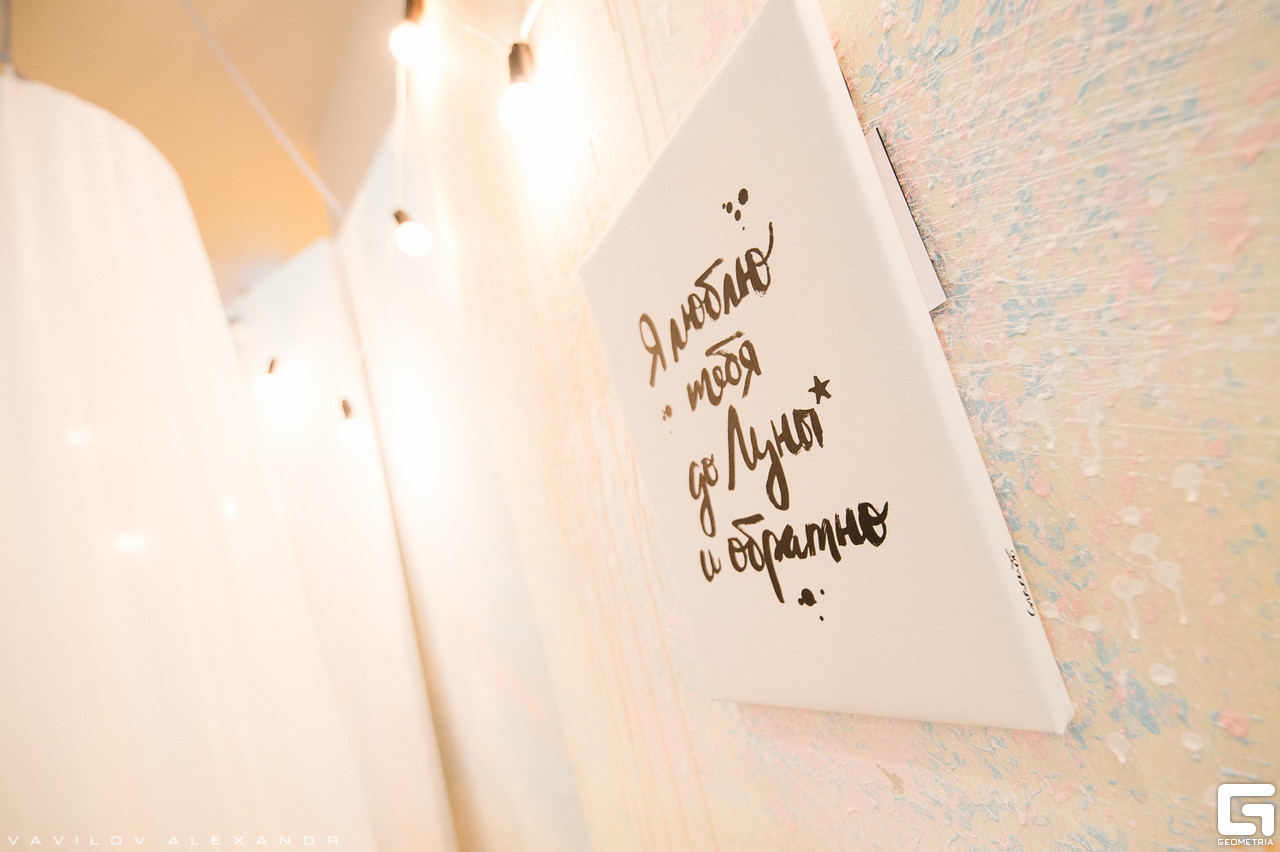 Я люблю
тебя
до Луны
и обратно
VAVILOV ALEXANDR
GEOMETRIA